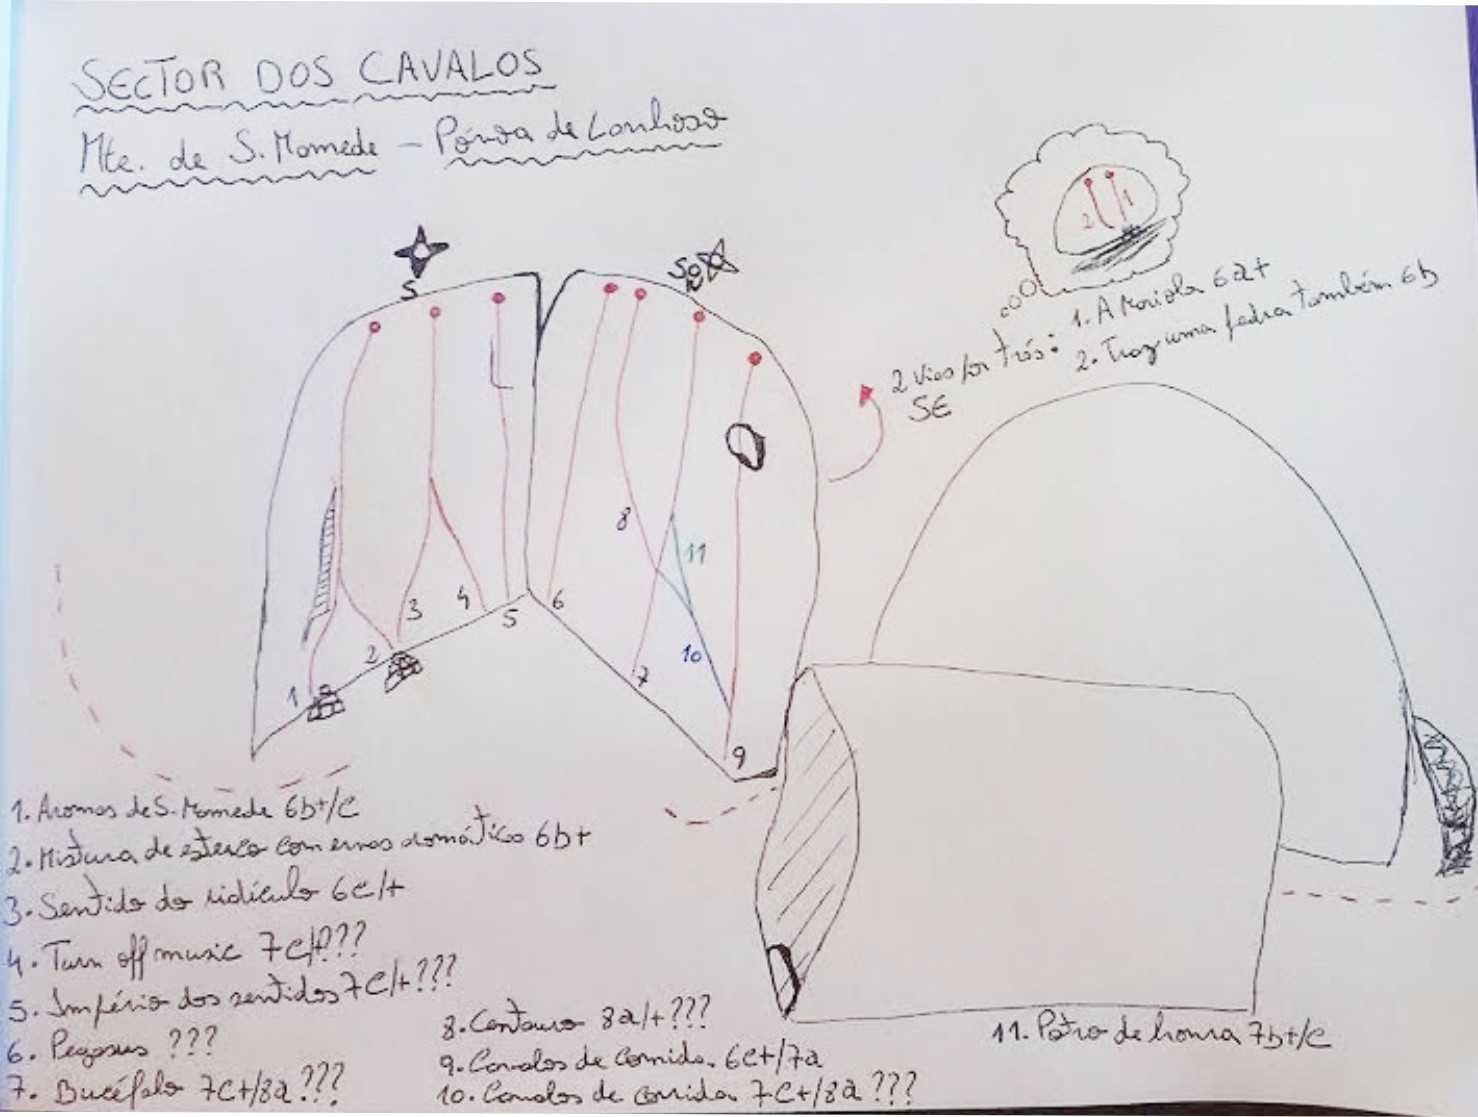 SECTOR DOS CAVALOS
Mte. de S. Mamede - Póvoa de Lanhoso
S
SE
2 1
2 Vias por trás: 1. A Mariola 6a+
SE 2. Traz uma pedra também 6b
8
11
3 4 5 6
2 10 7
1
9
1. Aromas de S. Mamede 6b+/c
2. Mistura de esterco com ervas aromáticas 6b+
3. Sentido do ridículo 6c/+
4. Turn off music 7c/+???
5. Império dos sentidos 7c/+???
6. Pegasus ???
7. Bucéfalo 7c+/8a ???
8. Centauro 8a/+???
9. Cavalos de Corrida. 6c+/7a
10. Cavalos de corrida 7c+/8a ???
11. Potro de honra 7b+/c